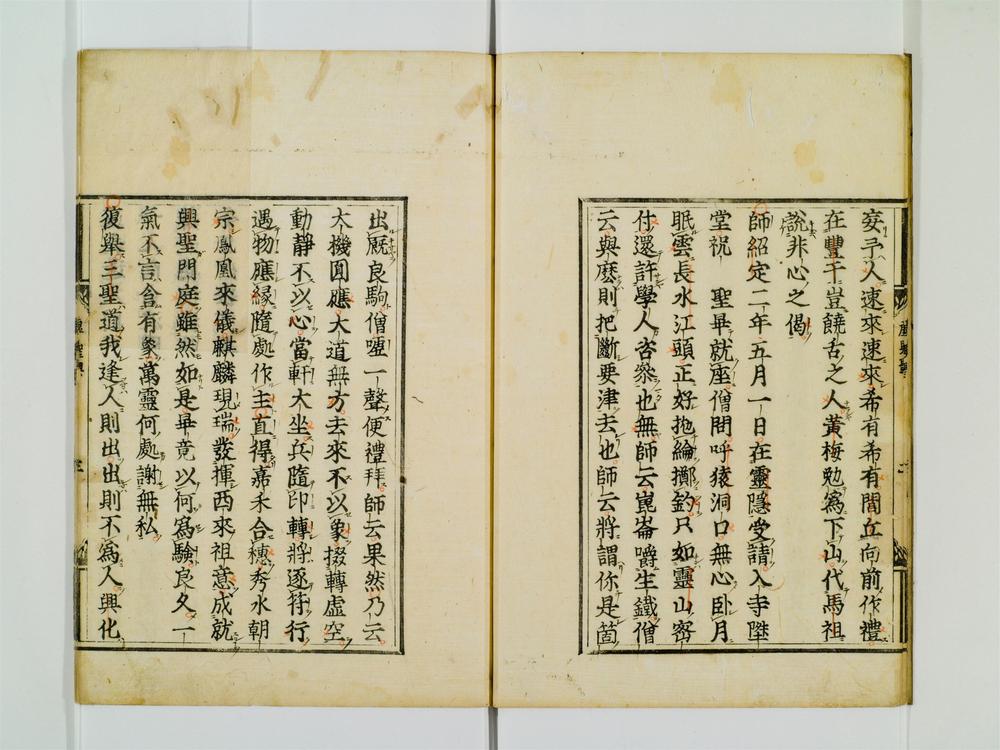 妄予人速來速來希有希有閭丘向前作禮
在豐干豈饒舌之人黃梅勉為下山代馬祖
說非心之偈
師紹定二年五月一日在靈隱受請入寺陞
堂祝　聖畢就座僧問呼猿洞口無心臥月
眠雲長水江頭正好拋綸擲釣只如靈山密
付還許學人咨參也無師云崑崙嚼生鐵僧
云與麼則把斷要津去也師云將謂你是箇
出厩良駒僧喝一聲便禮拜師云果然乃云
大機圓應大道無方去來不以象掇轉虛空
動靜不以心當軒大坐兵隨印轉將逐符行
遇物應緣隨處作主直得嘉禾合穗秀水朝
宗鳳凰來儀麒麟現瑞發揮西來祖意成就
興聖門庭雖然如是畢竟以何為驗良久一
氣不言含有象萬靈何處謝無私
復舉三聖道我逢人則出出則不為人興化